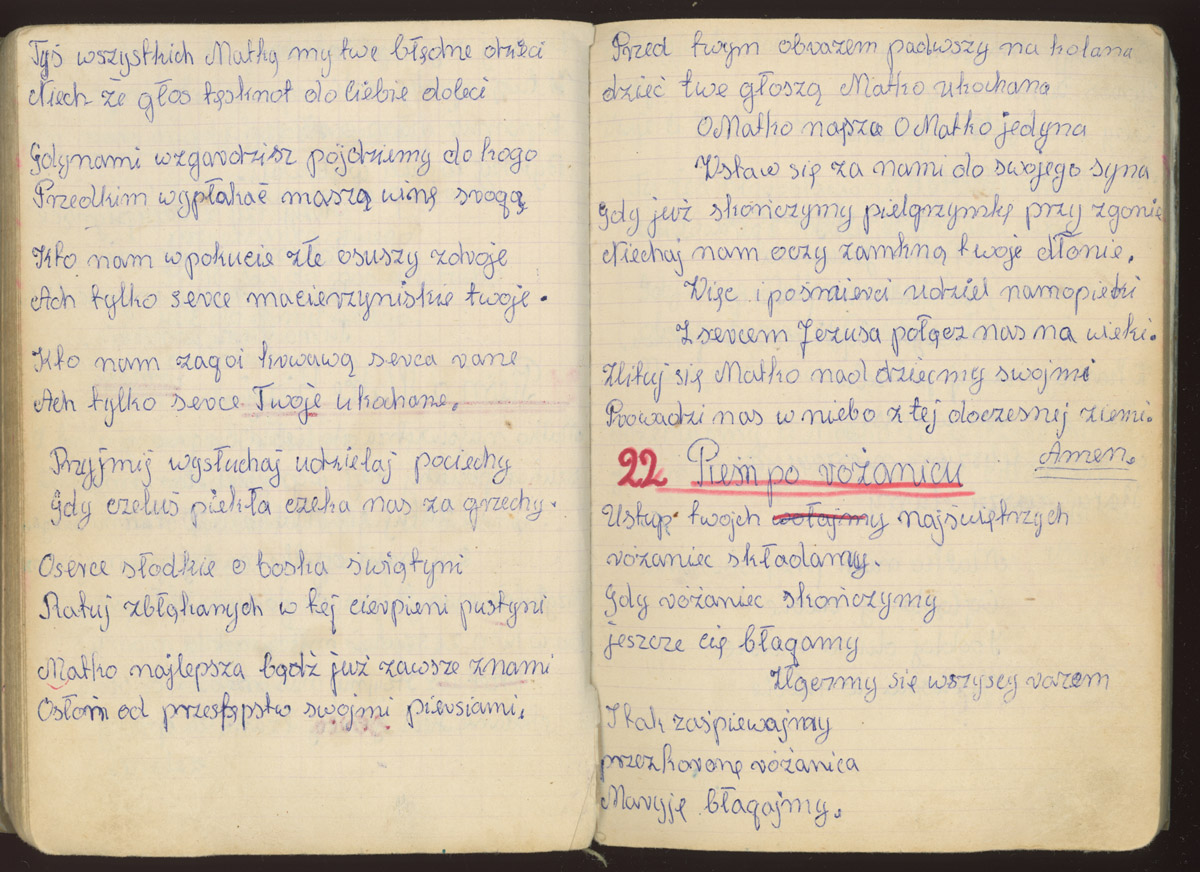 Tyś wszystkich Matką my twe błędne dzieci
Niech że głos tęsknot do Ciebie doleci
Gdynami wzgardzisz pójdziemy do kogo
Przedkim wypłakać maszą winę srogą
Kto nam wpokucie złe osuszy zdroje
Ach tylko serce macierzyniskie twoje.
Kto nam zagoi krwawą serca rane
Ach tylko serce Twoje ukochane.
Przyjmij wysłuchaj udzielaj pociechy
Gdy czeluś piekła czeka nas za grzechy.
Oserce słodkie o boska świątyni
Ratuj zbłąkanych w tej cierpieni pustyni
Matko najlepsza bądź już zawsze znami
Osłoń od przestępstw swojmi piersiami.
Przed twym obrazem padwszy na kolana
dzieć twe głoszą Matko ukochana
OMatko nasza OMatko jedyna
Wstaw się za nami do swojego syna
Gdy już skończymy pielgrzymkę przy zgonie
Niechaj nam oczy zamkną twoje dłonie.
Więc i pośmierci udziel namopieki
Z sercem Jezusa połącz nas na wieki.
Zlituj się Matko nad dziećmy swojmi
Prowadzi nas w niebo z tej doczesnej ziemi.
Amen.
22 Pieśń po różańcu
Ustup twojch wołajmy najświętrzych
różaniec składamy.
Gdy różaniec skończymy
jeszcze cię błagamy
Złączmy się wszyscy razem
I tak zaśpiewajmy
przezkoronę różańca
Maryję błagajmy.